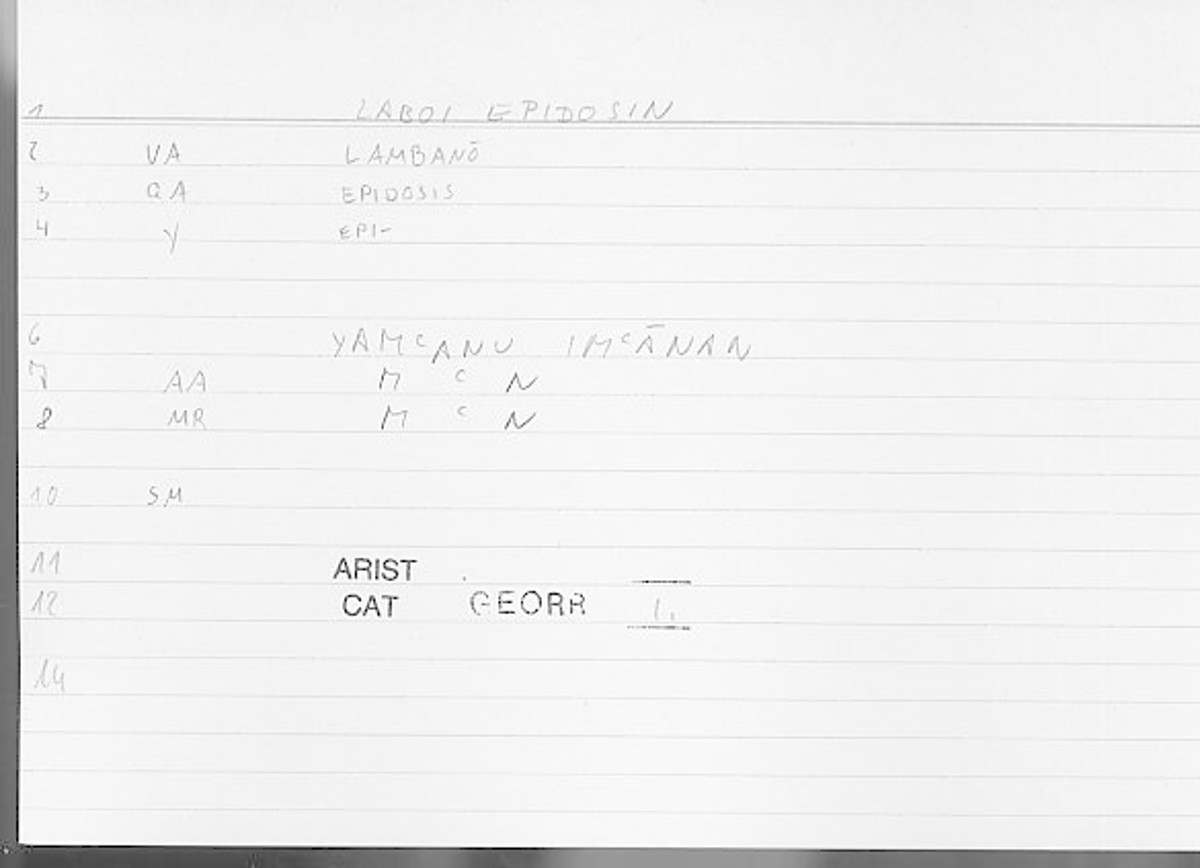 1 LABOI EPIDOSIN
2 VA LAMBANŌ
3 GA EPIDOSIS
4 Y EPI-
6 YAMᶜANU IMᶜĀNAN
7 AA M ᶜ N
8 MR M ᶜ N
10 SM
11 ARIST
12 CAT GEORR 1.
14